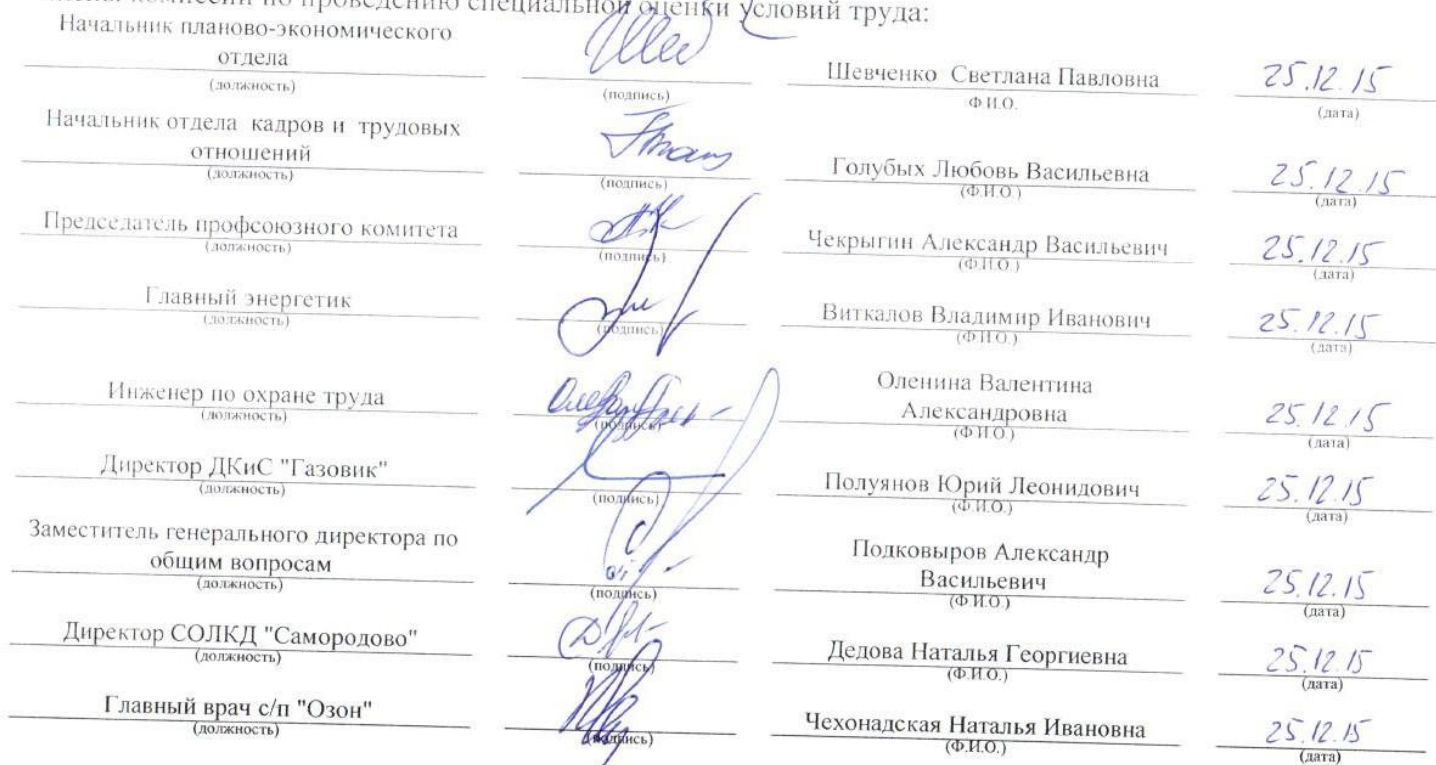 комиссии по проведению специальной оценки условий труда:
Начальник планово-экономического
отдела
(должность)
(подпись)
Шевченко Светлана Павловна
Ф.И.О.
25.12.15
(дата)
Начальник отдела кадров и трудовых
отношений
(должность)
(подпись)
Голубых Любовь Васильевна
(Ф.И.О.)
25.12.15
(дата)
Председатель профсоюзного комитета
(должность)
(подпись)
Чекрыгин Александр Васильевич
(Ф.И.О.)
25.12.15
(дата)
Главный энергетик
(должность)
(подпись)
Виткалов Владимир Иванович
(Ф.И.О.)
25.12.15
(дата)
Инженер по охране труда
(должность)
(подпись)
Оленина Валентина
Александровна
(Ф.И.О.)
25.12.15
(дата)
Директор ДКиС "Газовик"
(должность)
(подпись)
Полуянов Юрий Леонидович
(Ф.И.О.)
25.12.15
(дата)
Заместитель генерального директора по
общим вопросам
(должность)
(подпись)
Подковыров Александр
Васильевич
(Ф.И.О.)
25.12.15
(дата)
Директор СОЛКД "Самородово"
(должность)
(подпись)
Дедова Наталья Георгиевна
(Ф.И.О.)
25.12.15
(дата)
Главный врач с/п "Озон"
(должность)
(подпись)
Чехонадская Наталья Ивановна
(Ф.И.О.)
25.12.15
(дата)